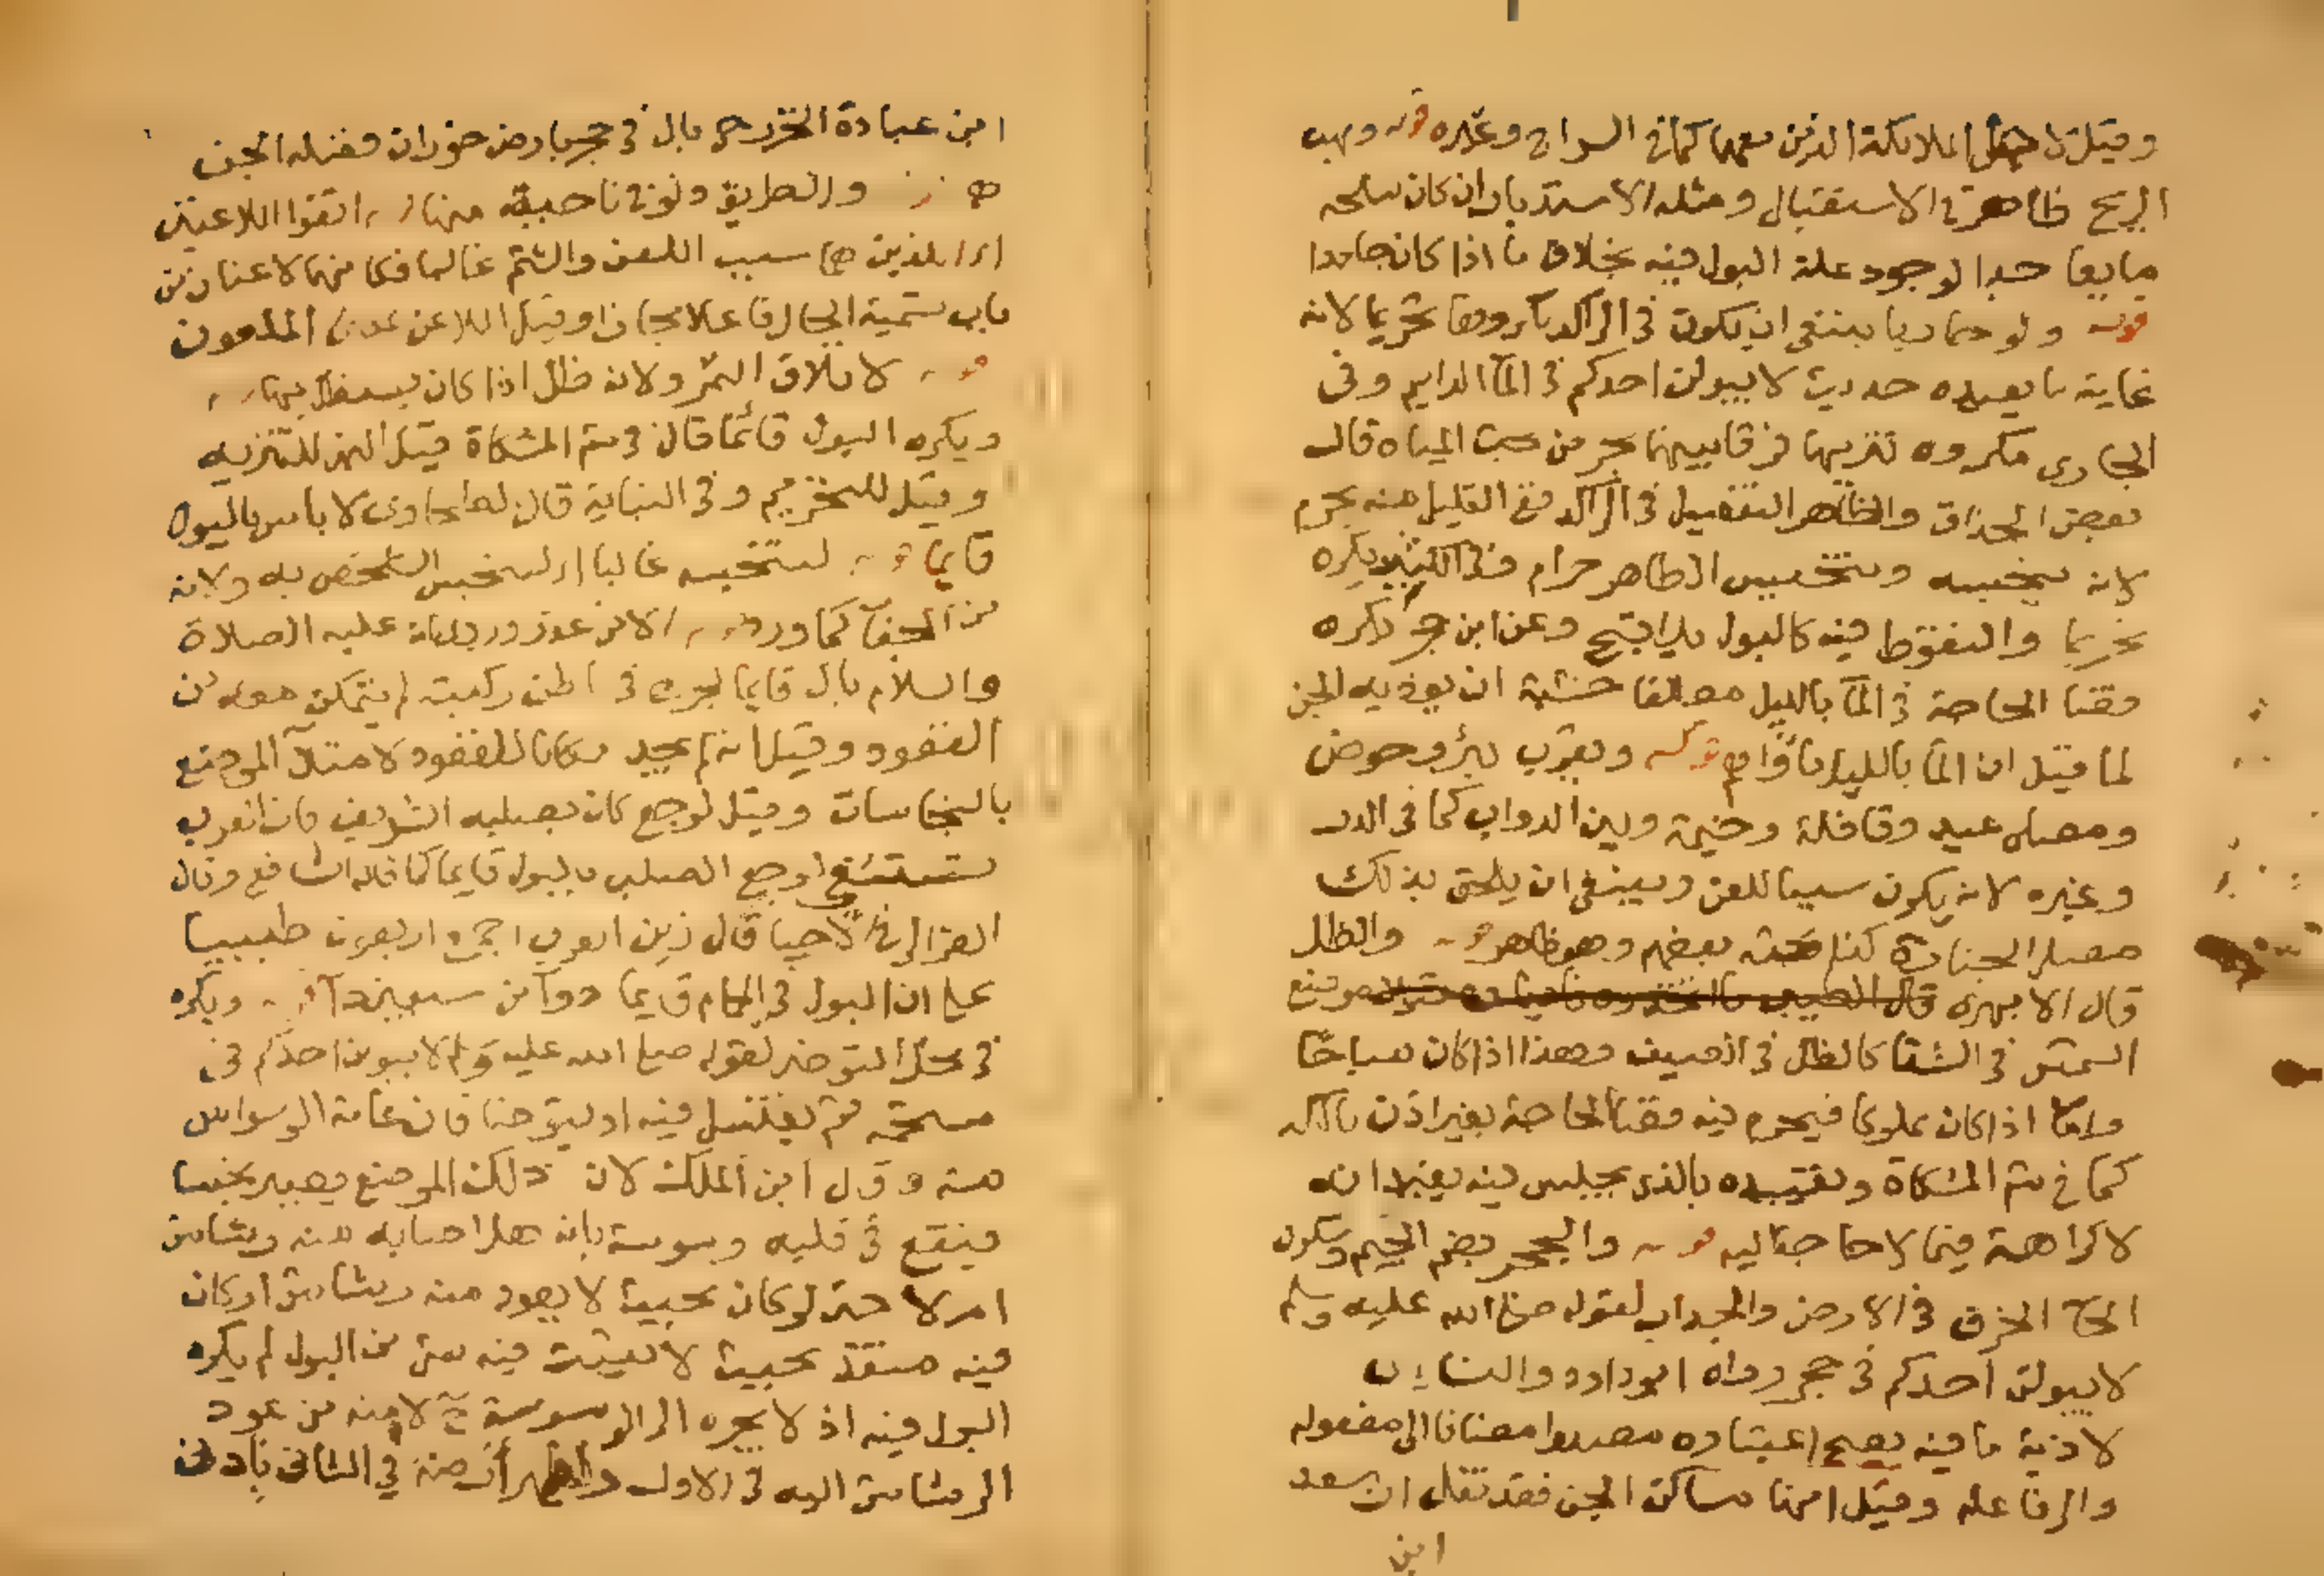 وقيل لاجل الملائكة الذين معهما كما في السراج وغيره قوله ومهب
الريح ظاهره في الاستقبال ومثله الاستدبار ان كان سلحه
مايعا جدا لوجود علة البول فيه بخلاف ما اذا كان جامدا
قوله ولو جاريا ينبغي ان يكون في الراكد مكروها تحريما لانه
غاية ما يفيده حديث لا يبولن احدكم في الماء الدايم وفي
الجاري مكروه تنزيها فرقا بينهما بحر من بحث المياه قال
بعض الحذاق والظاهر التفصيل في الراكد ففي القليل منه يحرم
لانه ينجسه وتنجيس الطاهر حرام وفي الكثير يكره
تحريما والتغوط فيه كالبول بل اقبح وعن ابن حجر يكره
قضا الحاجة في الماء بالليل مطلقا خشية ان يوذيه الجن
لما قيل ان الماء بالليل ماواهم قوله وبقرب بئر وحوض
ومصلى عيد وقافلة وخيمة وبين الدواب كما في الدر
وغيره لانه يكون سببا للعن وينبغي ان يلحق بذلك
مصلى الجنازة كذا بحثه بعضهم وهو ظاهر قوله والظل
قال الابهري موضع
الشمس في الشتا كالظل في الصيف وهذا اذا كان مباحا
واما اذا كان مملوكا فيحرم فيه قضا الحاجة بغير اذن مالكه
كما في شم المشكاة وتقييده بالذي يجلس فيه يفيد انه
لا كراهة فيما لا حاجة اليه قوله والجحر بضم الجيم وسكون
الحا الخرق في الارض والجدار لقوله صلى الله عليه وسلم
لا يبولن احدكم في جحر رواه ابو داود والنسائي
لاذية ما فيه يصح اعتباره مصدرا مضافا الى مفعوله
والى فاعله وقيل انها مساكن الجن فقد نقل ان سعد
ابن
ابن عبادة الخزرجي بال في جحر بارض حوران فقتله الجن
والطريق ولو في ناحية منها اتقوا اللاعنين
اي اللذين هما سبب اللعن والشتم غالبا فكانهما لاعنان من
باب تسمية الحال فاعلا مجازا وقيل اللاعن بمعنى الملعون
قوله لاتلاف الثمر ولانه ظل اذا كان يستظل بها
ويكره البول قائما قال في شم المشكاة قيل النهي للتنزيه
وقيل للتحريم وفي البناية قال الطحاوي لا باس بالبول
قايما قوله لتنجسه غالبا اي لتنجس الشخص به ولانه
من الجفا كما ورد قوله الا من عذر ورد انه عليه الصلاة
والسلام بال قايما لجرح في باطن ركبته لم يتمكن معه من
القعود وقيل انه لم يجد مكانا للقعود لامتلا الموضع
بالنجاسات وقيل لوجع كان بصلبه الشريف فان العرب
تستشفي لوجع الصلب بالبول قايما كما قاله الشافعي وقال
الغزالي في الاحيا قال زين العرب اجمع اربعون طبيبا
على ان البول في الحمام قايما دوا من سبعين داء قوله ويكره
في محل التوضي لقوله صلى الله عليه وسلم لا يبولن احدكم في
مستحمه ثم يغتسل فيه او يتوضا فان عامة الوسواس
منه وقال ابن الملك لان ذلك الموضع يصير نجسا
فيقع في قلبه وسوسة بانه هل اصابه منه رشاش
ام لا حتى لو كان بحيث لا يعود منه رشاش او كان
فيه منفذ بحيث لا يثبت فيه شي من البول لم يكره
البول فيه اذ لا يجره الى الوسوسة ح لامنه من عود
الرشاش اليه في الاول ولطهر ارضه في الثاني بادنى